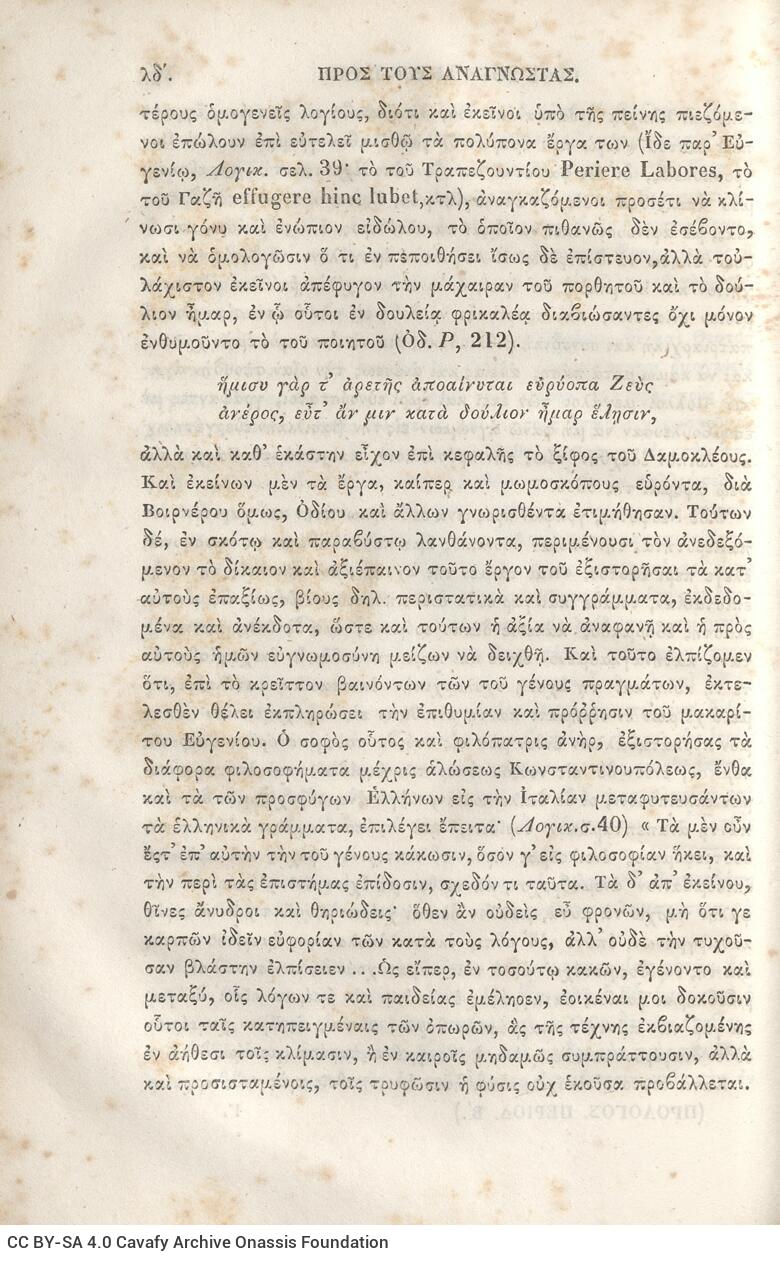 λδ´. ΠΡΟΣ ΤΟΥΣ ΑΝΑΓΝΩΣΤΑΣ.
τέρους ὁμογενεῖς λογίους, διότι καὶ ἐκεῖνοι ὑπὸ τῆς πείνης πιεζόμε-
νοι ἐπώλουν ἐπὶ εὐτελεῖ μισθῷ τὰ πολύπονα ἔργα των (Ἴδε παρ᾽ Εὐ-
γενίῳ, Λογικ. σελ. 39· τὸ τοῦ Τραπεζουντίου Periere Labores, τὸ
τοῦ Γαζῆ effugere hinc lubet, κτλ), ἀναγκαζόμενοι προσέτι νὰ κλί-
νωσι γόνυ καὶ ἐνώπιον εἰδώλου, τὸ ὁποῖον πιθανῶς δὲν ἐσέβοντο,
καὶ νὰ ὁμολογῶσιν ὅ τι ἐν πεποιθήσει ἴσως δὲ ἐπίστευον, ἀλλὰ τοὐ-
λάχιστον ἐκεῖνοι ἀπέφυγον τὴν μάχαιραν τοῦ πορθητοῦ καὶ τὸ δού-
λιον ἦμαρ, ἐν ᾧ οὗτοι ἐν δουλείᾳ φρικαλέᾳ διαβιώσαντες ὄχι μόνον
ἐνθυμοῦντο τὸ τοῦ ποιητοῦ (Ὀδ. Ρ, 212).
ἥμισυ γὰρ τ᾽ ἀρετῆς ἀποαίνυται εὐρύοπα Ζεὺς
ἀνέρος, εὖτ᾽ ἄν μιν κατὰ δούλιον ἦμαρ ἕλῃσιν,
ἀλλὰ καὶ καθ᾽ ἑκάστην εἶχον ἐπὶ κεφαλῆς τὸ ξίφος τοῦ Δαμοκλέους.
Καὶ ἐκείνων μὲν τὰ ἔργα, καίπερ καὶ μωμοσκόπους εὑρόντα, διὰ
Βοιρνέρου ὅμως, Ὁδίου καὶ ἄλλων γνωρισθέντα ἐτιμήθησαν. Τούτων
δέ, ἐν σκότῳ καὶ παραβύστῳ λανθάνοντα, περιμένουσι τὸν ἀνεδεξό-
μενον τὸ δίκαιον καὶ ἀξιέπαινον τοῦτο ἔργον τοῦ ἐξιστορῆσαι τὰ κατ᾽
αὐτοὺς ἐπαξίως, βίους δηλ. περιστατικὰ καὶ συγγράμματα, ἐκδεδο-
μένα καὶ ἀνέκδοτα, ὥστε καὶ τούτων ἡ ἀξία νὰ ἀναφανῇ καὶ ἡ πρὸς
αὐτοὺς ἡμῶν εὐγνωμοσύνη μείζων νὰ δειχθῇ. Καὶ τοῦτο ἐλπίζομεν
ὅτι, ἐπὶ τὸ κρεῖττον βαινόντων τῶν τοῦ γένους πραγμάτων, ἐκτε-
λεσθὲν θέλει ἐκπληρώσει τὴν ἐπιθυμίαν καὶ πρόῤῥησιν τοῦ μακαρί-
του Εὐγενίου. Ὁ σοφὸς οὗτος καὶ φιλόπατρις ἀνὴρ, ἐξιστορήσας τὰ
διάφορα φιλοσοφήματα μέχρις ἁλώσεως Κωνσταντινουπόλεως, ἔνθα
καὶ τὰ τῶν προσφύγων Ἑλλήνων εἰς τὴν Ἰταλίαν μεταφυτευσάντων
τὰ ἑλληνικὰ γράμματα, ἐπιλέγει ἔπειτα· (Λογικ. σ. 40) « Τὰ μὲν οὖν
ἔςτ᾽ ἐπ᾽ αὐτὴν τὴν τοῦ γένους κάκωσιν, ὅσον γ᾽ εἰς φιλοσοφίαν ἥκει, καὶ
τὴν περὶ τὰς ἐπιστήμας ἐπίδοσιν, σχεδόν τι ταῦτα. Τὰ δ᾽ ἀπ᾽ ἐκείνου,
θῖνες ἄνυδροι καὶ θηριώδεις· ὅθεν ἂν οὐδεὶς εὖ φρονῶν, μὴ ὅτι γε
καρπῶν ἰδεῖν εὐφορίαν τῶν κατὰ τοὺς λόγους, ἀλλ᾽ οὐδὲ τὴν τυχοῦ-
σαν βλάστην ἐλπίσειεν ... Ὡς εἴπερ, ἐν τοσούτῳ κακῶν, ἐγένοντο καὶ
μεταξύ, οἷς λόγων τε καὶ παιδείας ἐμέληοεν, ἐοικέναι μοι δοκοῦσιν
οὗτοι ταῖς κατηπειγμέναις τῶν ὀπωρῶν, ἃς τῆς τέχνης ἐκβιαζομένης
ἐν ἀήθεσι τοῖς κλίμασιν, ἢ ἐν καιροῖς μηδαμῶς συμπράττουσιν, ἀλλὰ
καὶ προσισταμένοις, τοῖς τρυφῶσιν ἡ φύσις οὐχ ἑκοῦσα προβάλλεται.
CC BY-SA 4.0 Cavafy Archive Onassis Foundation